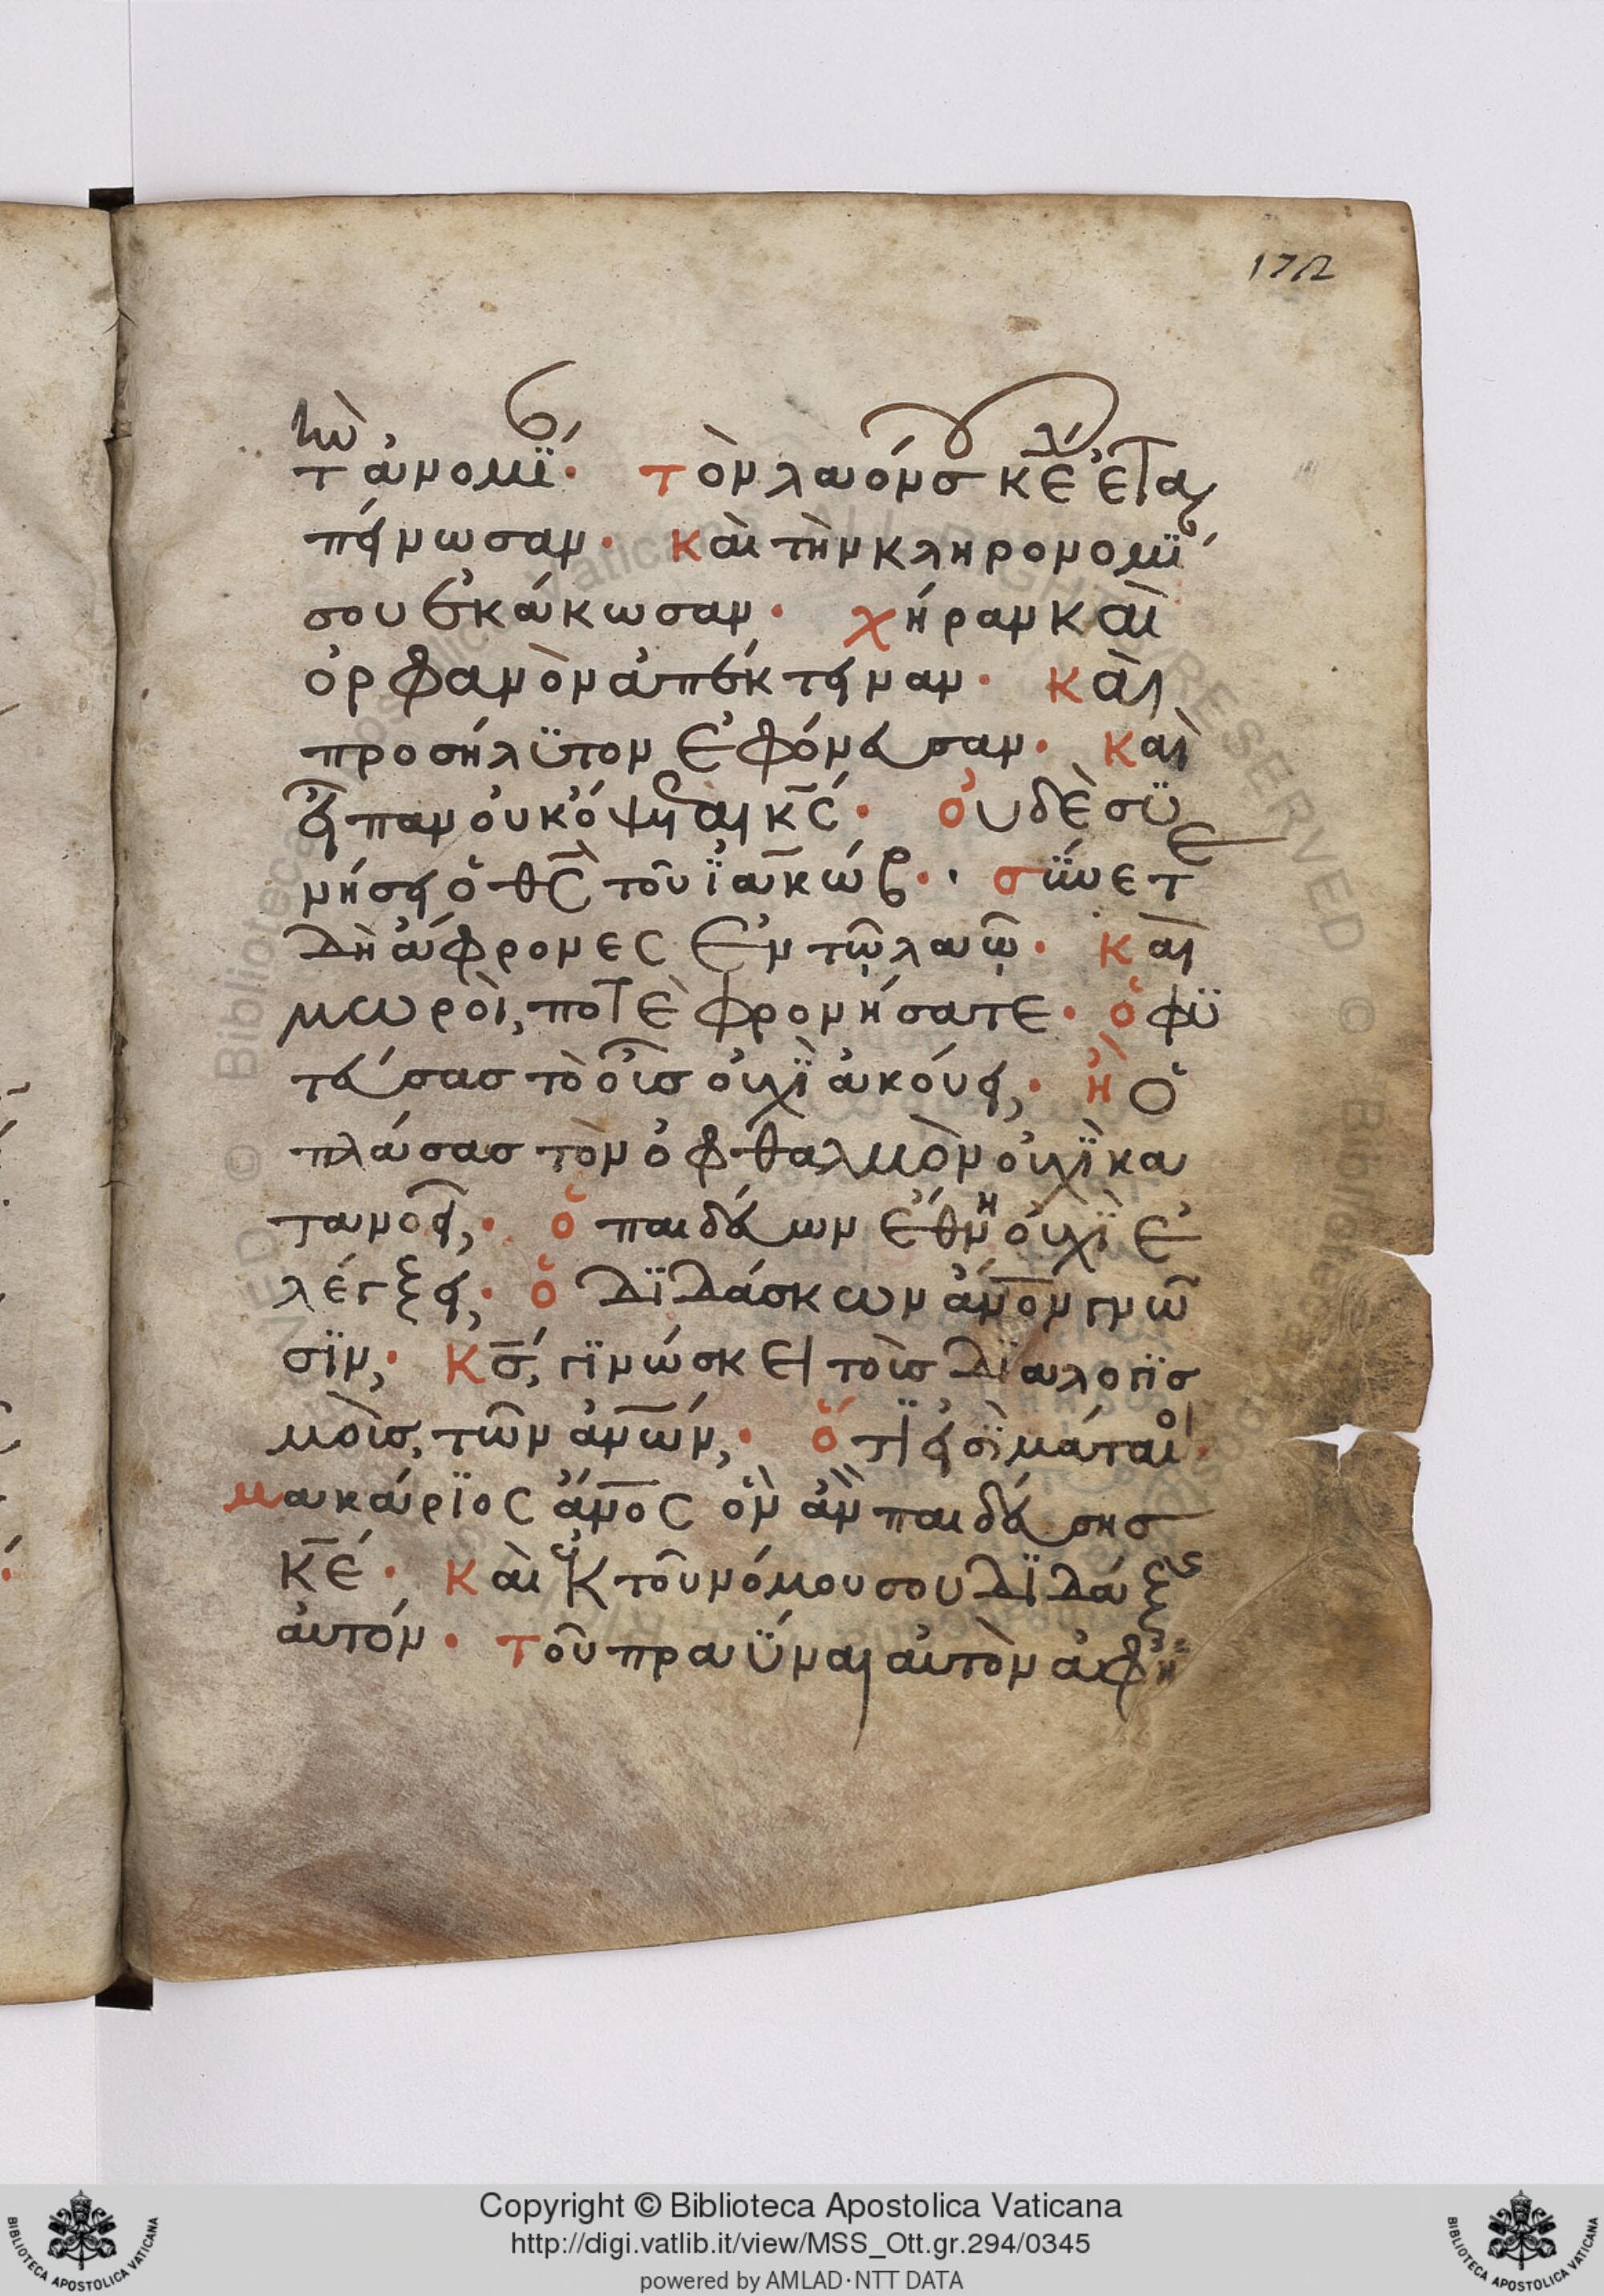 172
τὴν ἀνομΐ· τὸν λαόν σ κε ἐταπεί
πείνωσαν· καὶ τὴν κληρονομΐ
σου ἐκάκωσαν· χήραν καὶ
ὀρφανὸν ἀπέκτειναν· καὶ
προσήλϋτον ἐφόνευσαν· καὶ
εἶπαν οὐκ ὄψεται κς· οὐδὲ σϋ
νήσει ὁ θς τοῦ ϊακώβ·· σύνετε
δὴ ἄφρονες ἐν τῶ λαῶ· καὶ
μωροὶ, ποτὲ φρονήσατε· ὁ φϋ
τεύσας τὸ οὖς οὐχΐ ἀκούει,· ἢ ὁ
πλάσας τὸν ὀφθαλμὸν οὐχΐ κα
τανοεῖ,· ὁ παιδεύων ἔθνη οὐχΐ ἐ
λέγξει,· ὁ δϊδάσκων ἄνον γνῶ
σϊν,· κς, γϊνώσκει τοὺς δϊαλογϊσ
μοὺς, τῶν ἀνων,· ὅτι εἰσΐ μάταιοι·
μακάρϊος ἄνος ὃν ἂν παιδεύσης
κε· καὶ ἐκ τοῦ νόμου σου δϊδάξεις
αὐτόν· τοῦ πραΰναι αὐτὸν ἀφ' ἡ
Copyright © Biblioteca Apostolica Vaticana
http://digi.vatlib.it/view/MSS_Ott.gr.294/0345
powered by AMLAD·NTT DATA
BIBLIOTECA APOSTOLICA VATICANA
BIBLIOTECA APOSTOLICA VATICANA